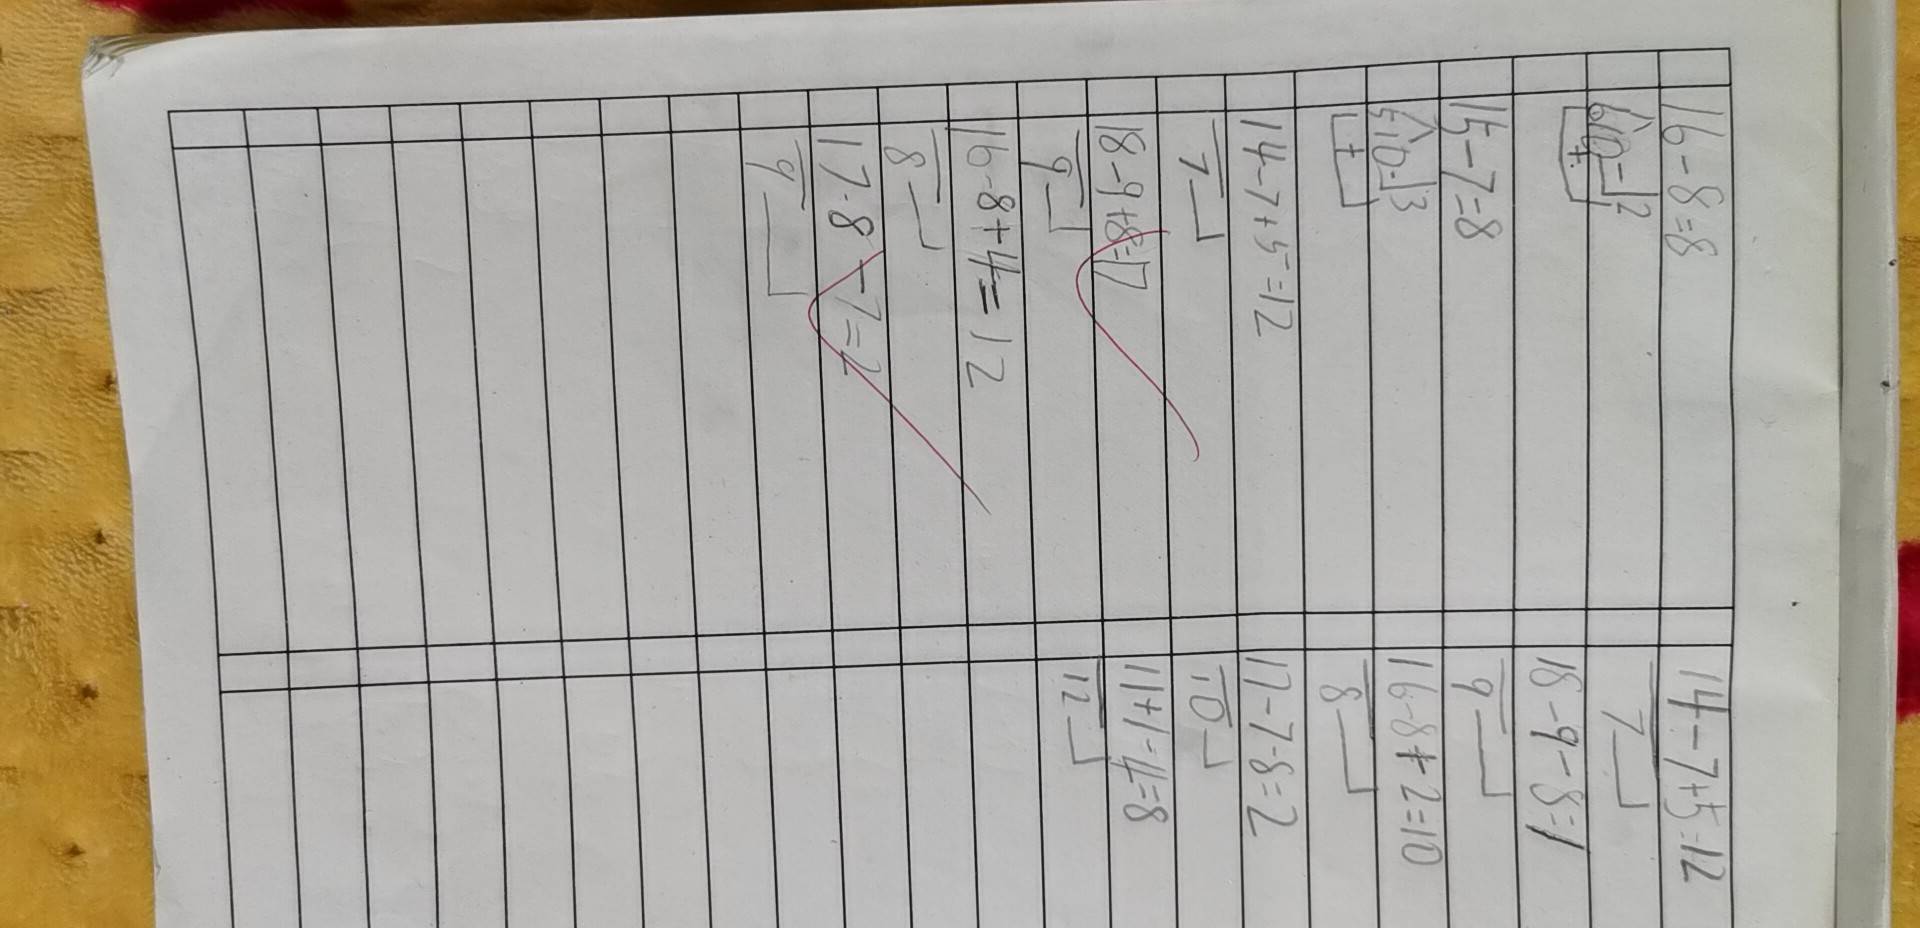 16-8=8
6 10 - 2
+
15-7=8
5 10 - 3
+
14-7+5=12
7
18-9+8=17
9
16-8+4=12
8
17-8-7=2
9
14-7+5=12
7
18-9-8=1
9
16-8+2=10
8
17-7-8=2
10
11+1-4=8
12